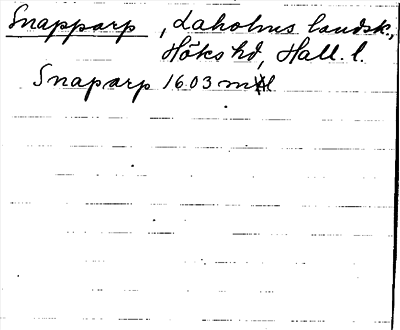 Snapparp, Laholms landsk.,
Höks hd, Hall. l.
Snaparp 1603 mtl